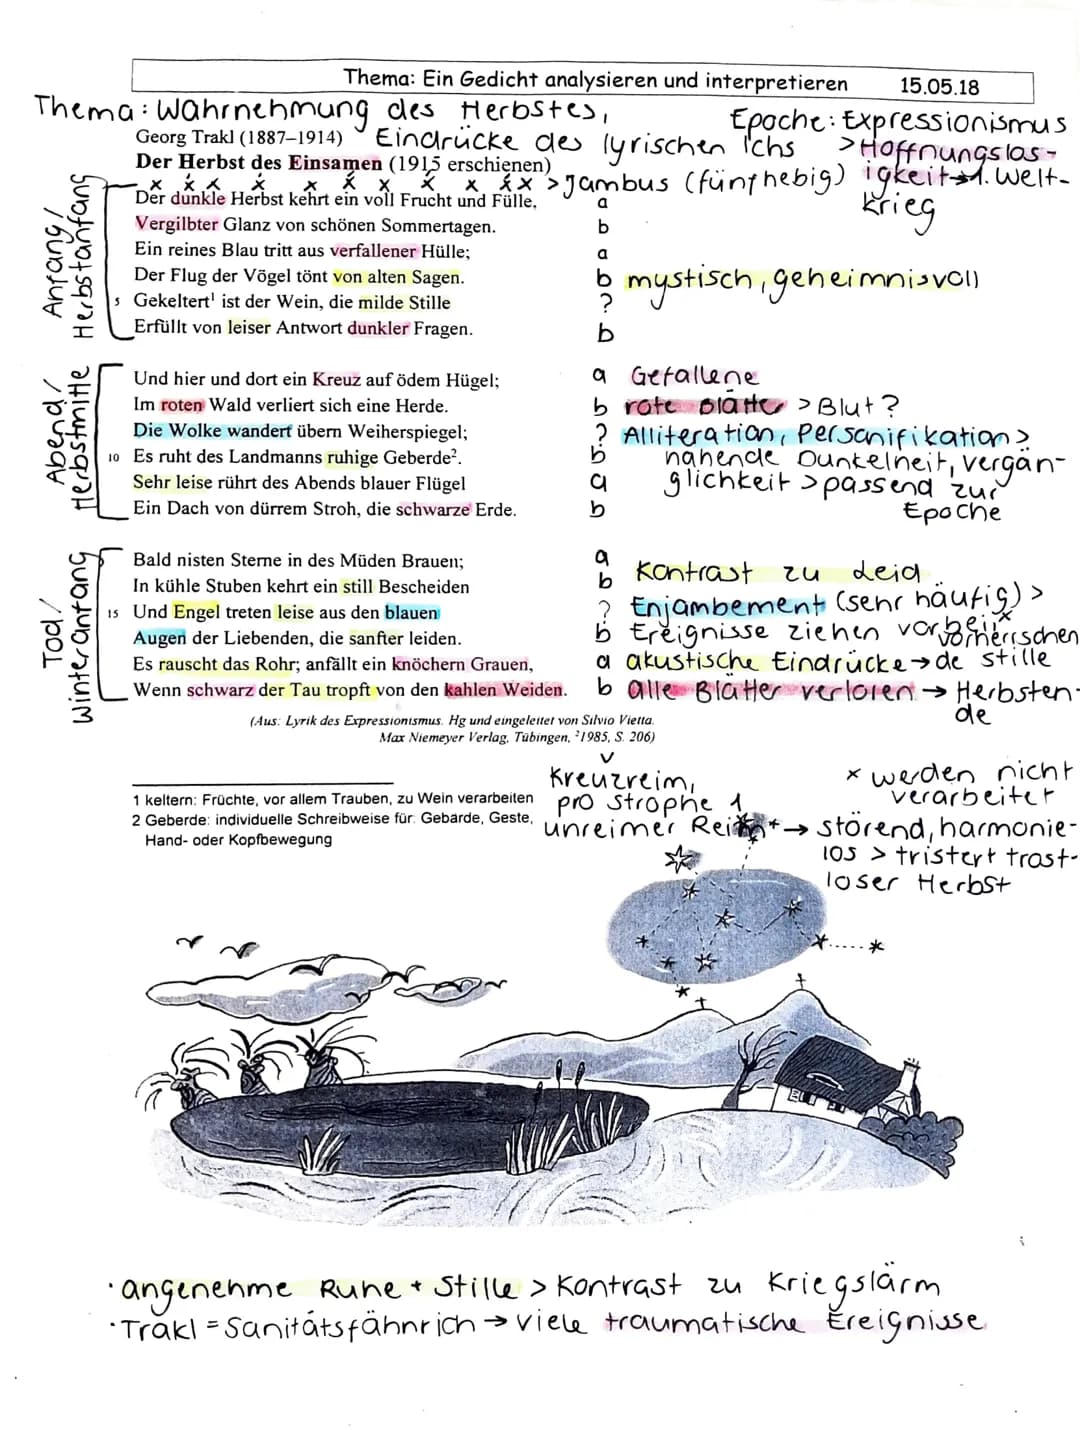 Thema: Ein Gedicht analysieren und interpretieren 15.05.18
Thema: Wahrnehmung des Herbstes,
Eindrücke des lyrischen Ichs
Epoche: Expressionismus
> Hoffnungslos-
igkeit → 1. Welt-
krieg
Georg Trakl (1887–1914)
Der Herbst des Einsamen (1915 erschienen)
x x́ x x́ x x́ x x́ x x́ x > Jambus (fünfhebig)
Anfang/
Herbstanfang
Der dunkle Herbst kehrt ein voll Frucht und Fülle, a
Vergilbter Glanz von schönen Sommertagen. b
Ein reines Blau tritt aus verfallener Hülle; a
Der Flug der Vögel tönt von alten Sagen. b mystisch, geheimnisvoll
5 Gekeltert¹ ist der Wein, die milde Stille ?
Erfüllt von leiser Antwort dunkler Fragen. b
Abend/
Herbstmitte
Und hier und dort ein Kreuz auf ödem Hügel; a Gefallene
Im roten Wald verliert sich eine Herde. b rote Blätter > Blut?
Die Wolke wandert übern Weiherspiegel; ? Alliteration, Personifikation >
10 Es ruht des Landmanns ruhige Geberde². b nahende Dunkelheit, vergän-
Sehr leise rührt des Abends blauer Flügel a glichkeit > passend zur
Ein Dach von dürrem Stroh, die schwarze Erde. b Epoche
Tod/
Winteranfang
Bald nisten Sterne in des Müden Brauen; a
In kühle Stuben kehrt ein still Bescheiden b Kontrast zu Leid
15 Und Engel treten leise aus den blauen ? Enjambement (sehr häufig) >
Augen der Liebenden, die sanfter leiden. b Ereignisse ziehen vorbei x
vorherrschen
Es rauscht das Rohr; anfällt ein knöchern Grauen, a akustische Eindrücke → de stille
Wenn schwarz der Tau tropft von den kahlen Weiden. b alle Blätter verloren → Herbsten-
de
(Aus: Lyrik des Expressionismus. Hg und eingeleitet von Silvio Vietta.
Max Niemeyer Verlag, Tübingen, ²1985, S. 206)
Kreuzreim,
pro Strophe 1
unreimer Reim → störend, harmonie-
los > tristert trost-
loser Herbst
x werden nicht
verarbeitet
1 keltern: Früchte, vor allem Trauben, zu Wein verarbeiten
2 Geberde: individuelle Schreibweise für: Gebärde, Geste,
Hand- oder Kopfbewegung
· angenehme Ruhe + Stille > Kontrast zu Kriegslärm
· Trakl = Sanitätsfähnrich → viele traumatische Ereignisse